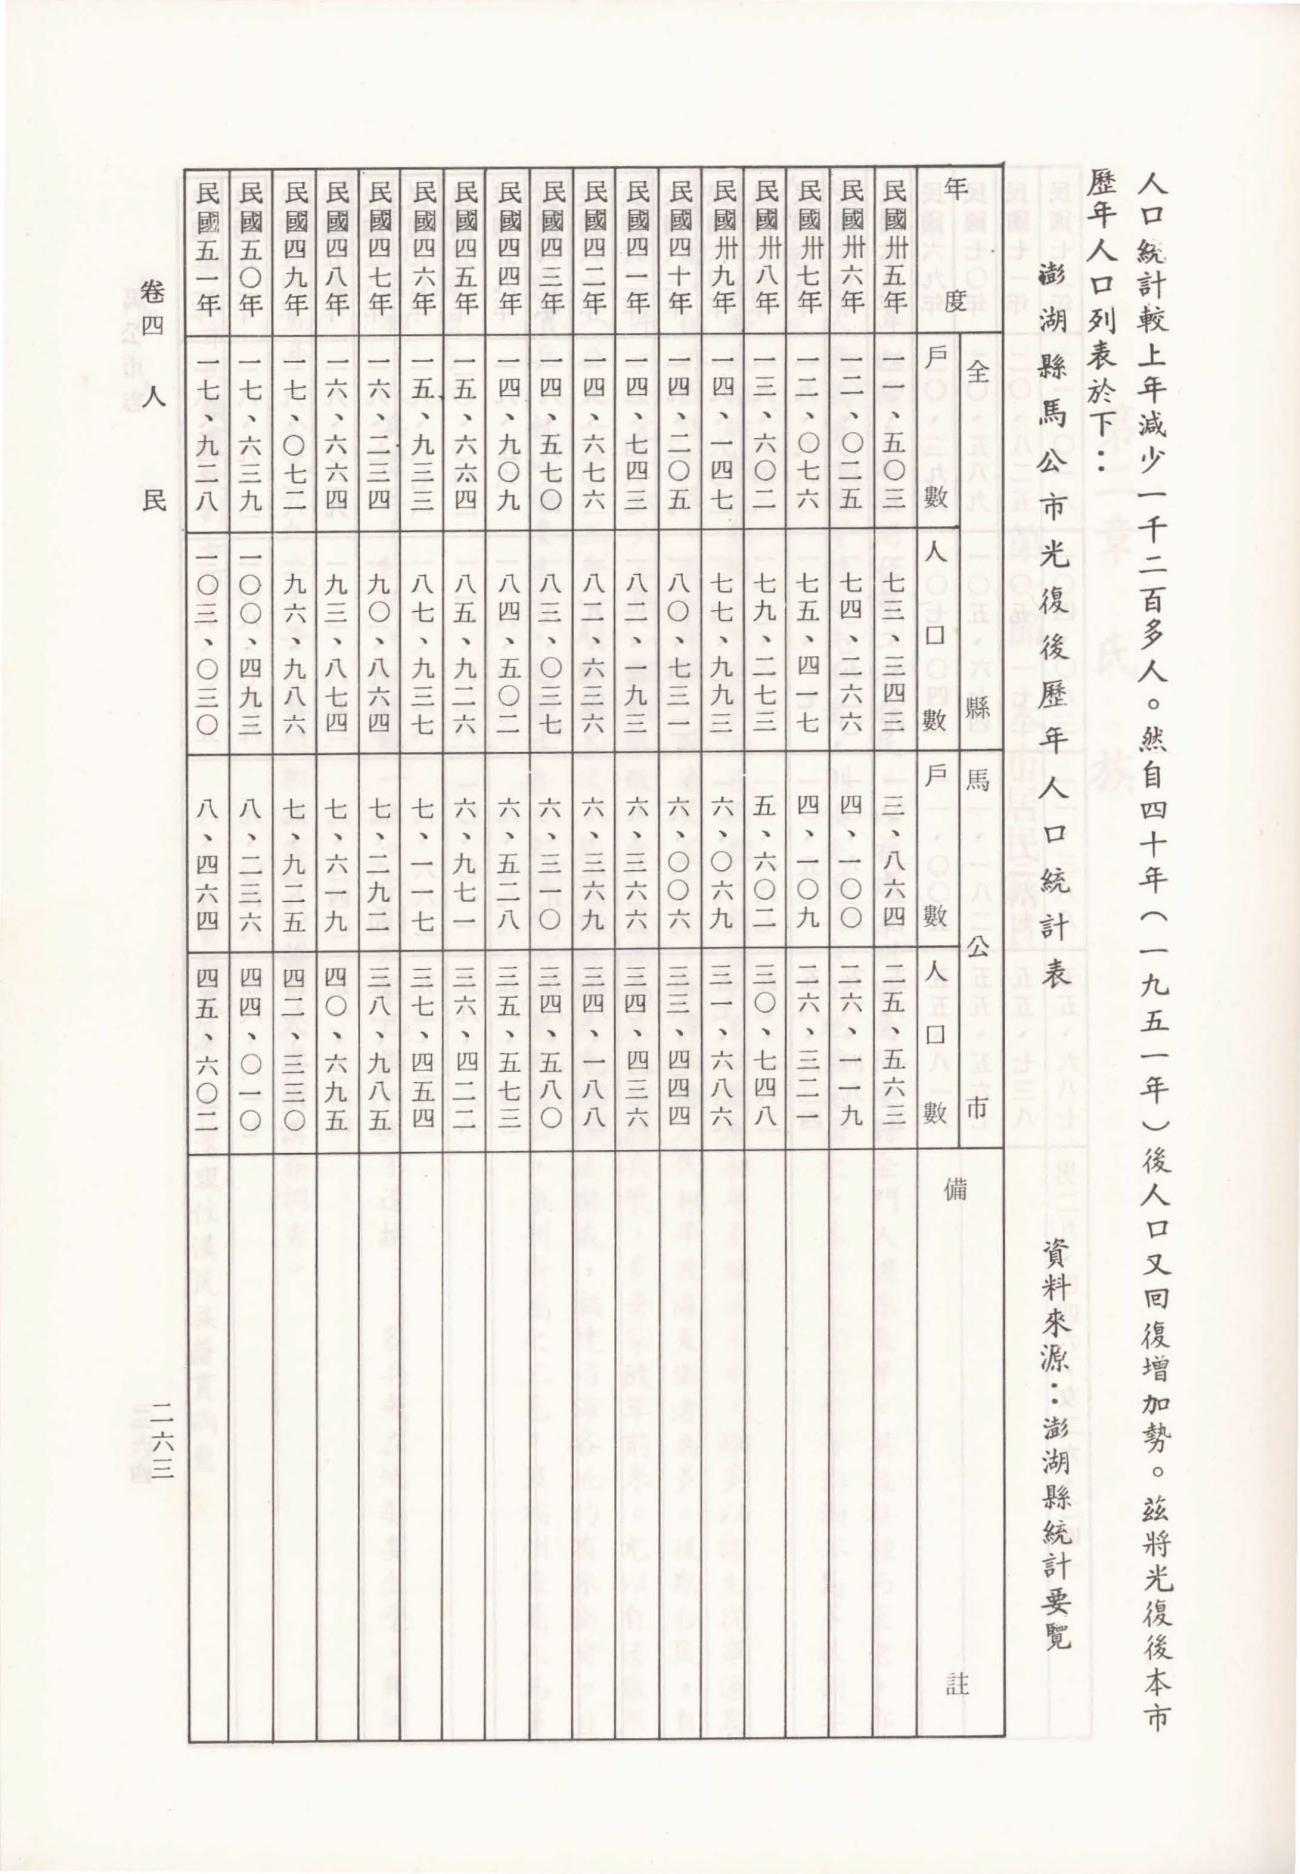 人口統計較上年減少一千二百多人。然自四十年(一九五一年)後人口又回復增加勢。茲將光復後本市
歷年人口列表於下：
澎湖縣馬公市光復後歷年人口統計表 資料來源：澎湖縣統計要覽
年度 全縣 馬公市 備註
戶數 人口數 戶數 人口數
民國卅五年 一一、五〇三 七三、三四三 三、八六四 二五、五六三
民國卅六年 一二、〇二五 七四、二六六 四、一〇〇 二六、一一九
民國卅七年 一二、〇七六 七五、四一七 四、一〇九 二六、三二一
民國卅八年 一三、六〇二 七九、二七三 五、六〇二 三〇、七四八
民國卅九年 一四、一四七 七七、九九三 六、〇六九 三一、六八六
民國四十年 一四、二〇五 八〇、七三一 六、〇〇六 三三、四四四
民國四一年 一四、七四三 八二、一九三 六、三六六 三四、四三六
民國四二年 一四、六七六 八二、六三六 六、三六九 三四、一八八
民國四三年 一四、五七〇 八三、〇三七 六、三一〇 三四、五八〇
民國四四年 一四、九〇九 八四、五〇二 六、五二八 三五、五七三
民國四五年 一五、六六四 八五、九二六 六、九七一 三六、四二二
民國四六年 一五、九三三 八七、九三七 七、一一七 三七、四五四
民國四七年 一六、二三四 九〇、八六四 七、二九二 三八、九八五
民國四八年 一六、六六四 九三、八七四 七、六一九 四〇、六九五
民國四九年 一七、〇七二 九六、九八六 七、九二五 四二、三三〇
民國五〇年 一七、六三九 一〇〇、四九三 八、二三六 四四、〇一〇
民國五一年 一七、九二八 一〇三、〇三〇 八、四六四 四五、六〇二
卷四 人民 二六三